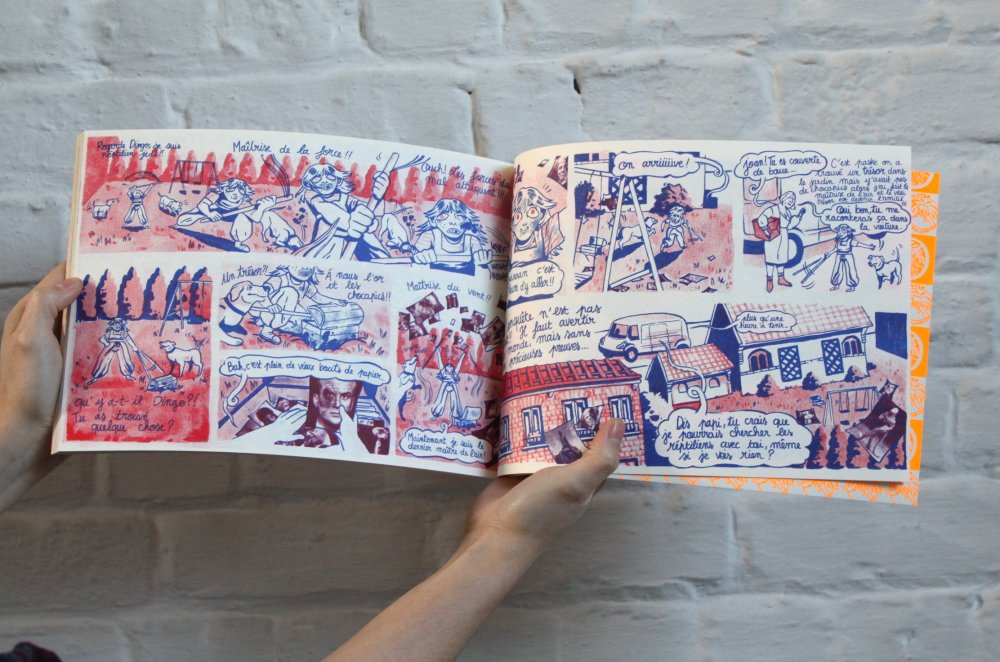 Regarde Dingo, je suis
reptilien jedi!!
Maîtrise de la force!!
Ouch! Les forces du
mal attaquent!!
Qu'y a-t-il Dingo?!
Tu as trouvé
quelque chose?
Un trésor?
À nous l'or
et les
chocapics!!
Bah, c'est plein de vieux bouts de papier
Maîtrise du vent!!
Maintenant je suis le
dernier maître de l'air!
c'est
d'y aller!!
On arriiiiive!
Joan! Tu es couverte
de boue...
C'est paske on a
trouvé un trésor dans
le jardin, mais y'avait pas
de chocapics alors on
maîtrise de l'air et le
trésor
Oui bon, tu me
raconteras ça dans
la voiture.
n'est pas
faut avertir
monde, mais sans
précieuses preuves...
plus qu'une
heure à tenir...
Dis papi, tu crois que
je pourrais chercher les
reptiliens avec toi, même
si je vois rien?